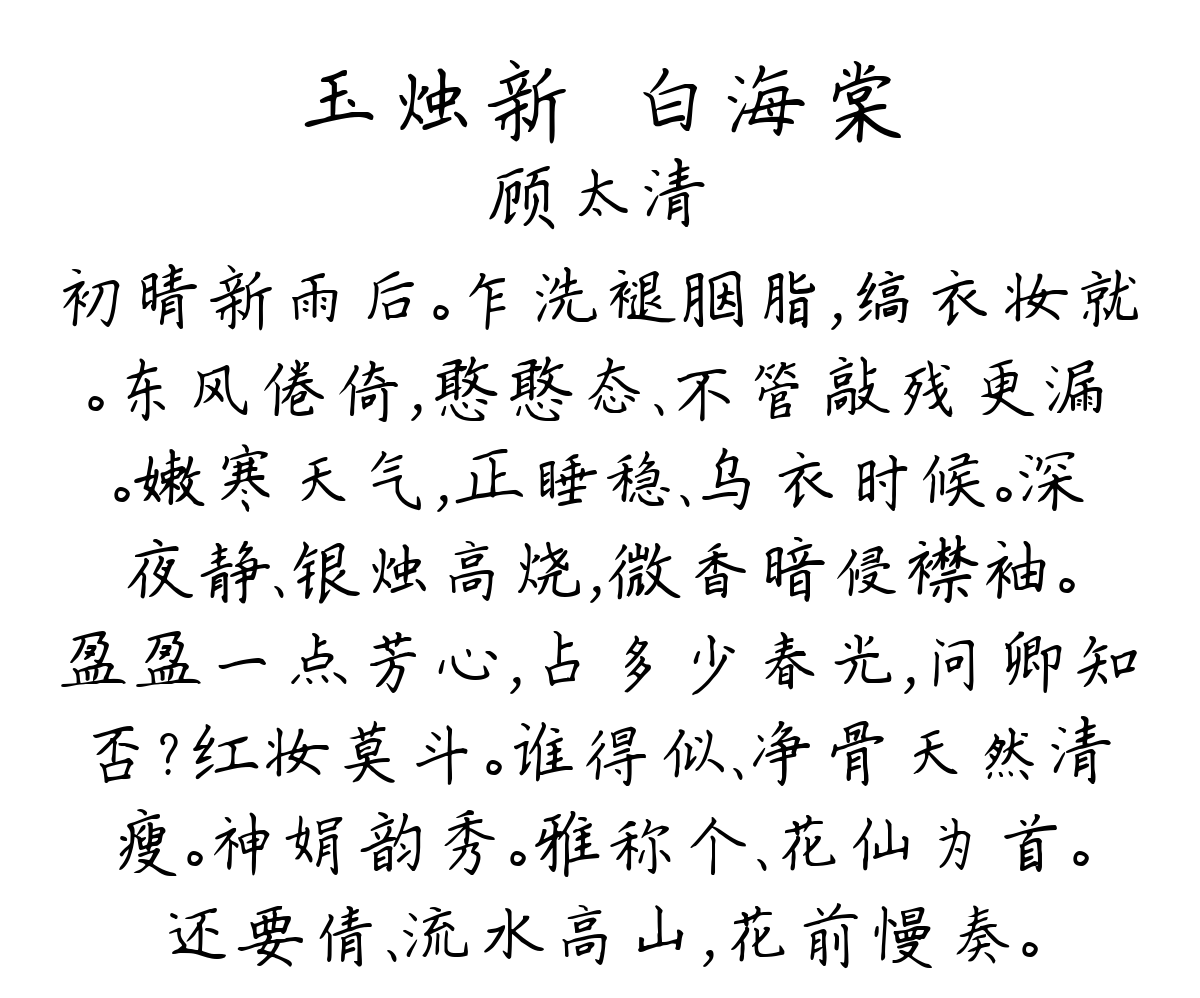 玉烛新 白海棠
顾太清
初晴新雨后。乍洗褪胭脂,缟衣妆就
。东风倦倚,憨憨态、不管敲残更漏
。嫩寒天气,正睡稳、乌衣时候。深
夜静、银烛高烧,微香暗侵襟袖。
盈盈一点芳心,占多少春光,问卿知
否?红妆莫斗。谁得似、净骨天然清
瘦。神娟韵秀。雅称个、花仙为首。
还要倩、流水高山,花前慢奏。